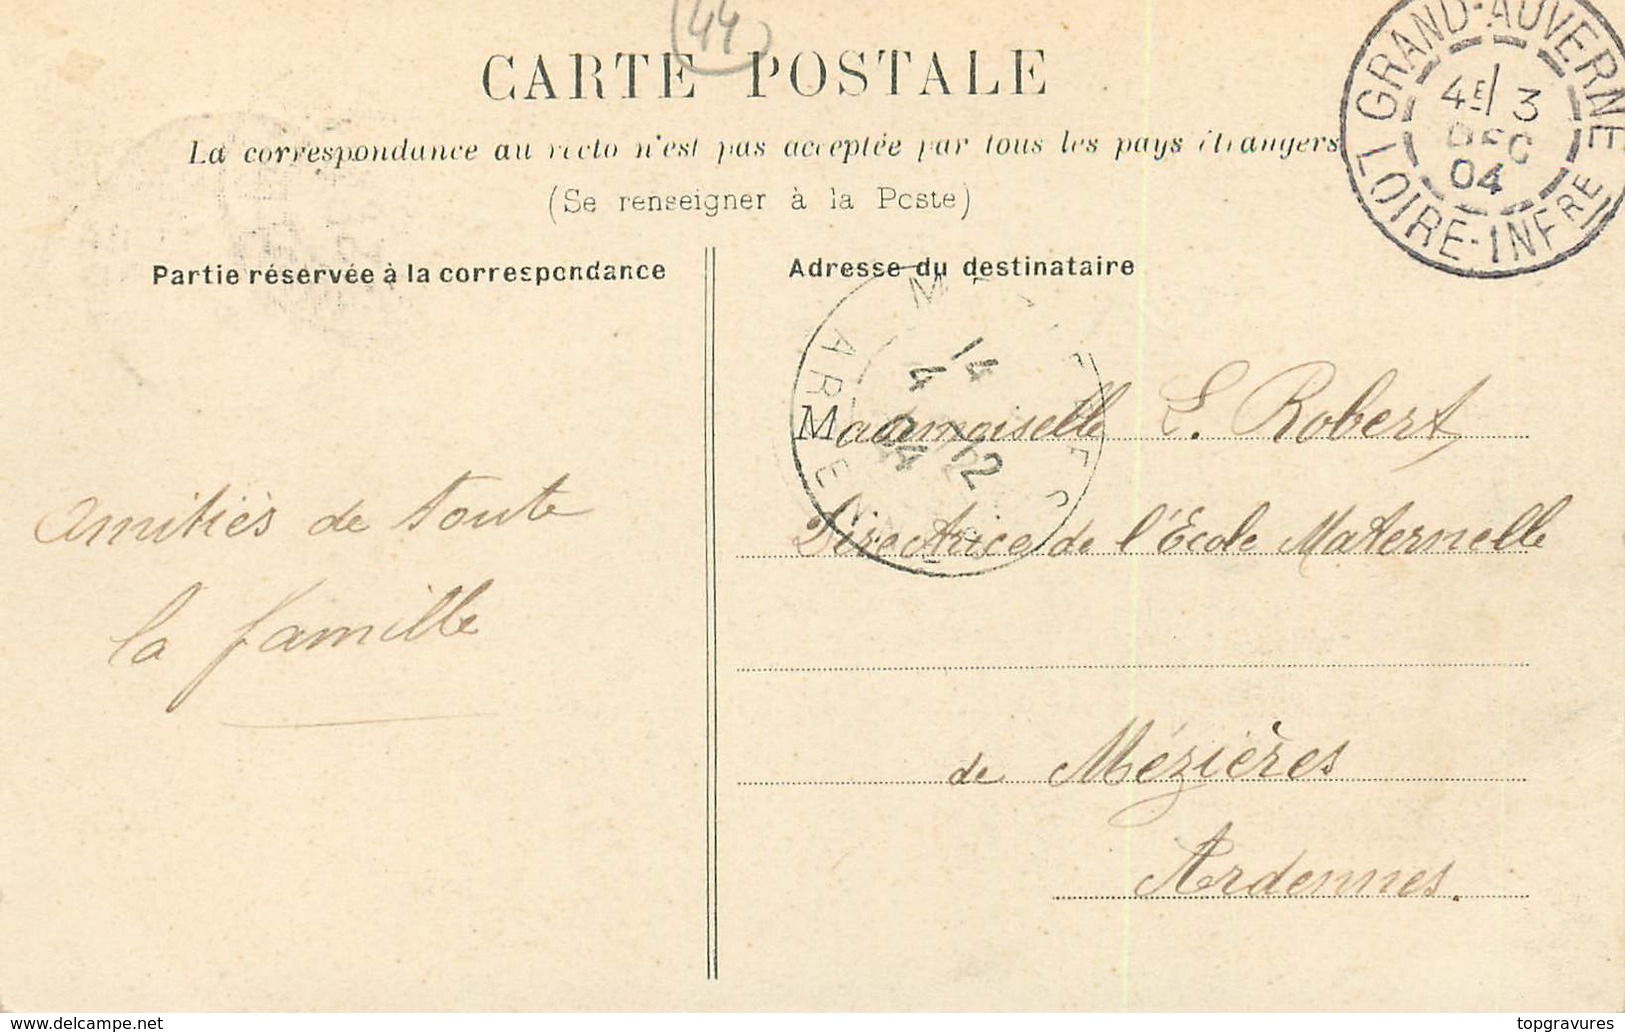 (44)
CARTE POSTALE
La correspondance au recto n'est pas acceptée par tous les pays étrangers
(Se renseigner à la Poste)
GRAND-AUVERNE
4E 3
DEC
04
LOIRE-INFRE
Partie réservée à la correspondance
amitiés de toute
la famille
Adresse du destinataire
14
4 12
04
Mademoiselle L. Robert
Directrice de l'Ecole Maternelle
de Mézières
Ardennes.
www.delcampe.net
topgravures